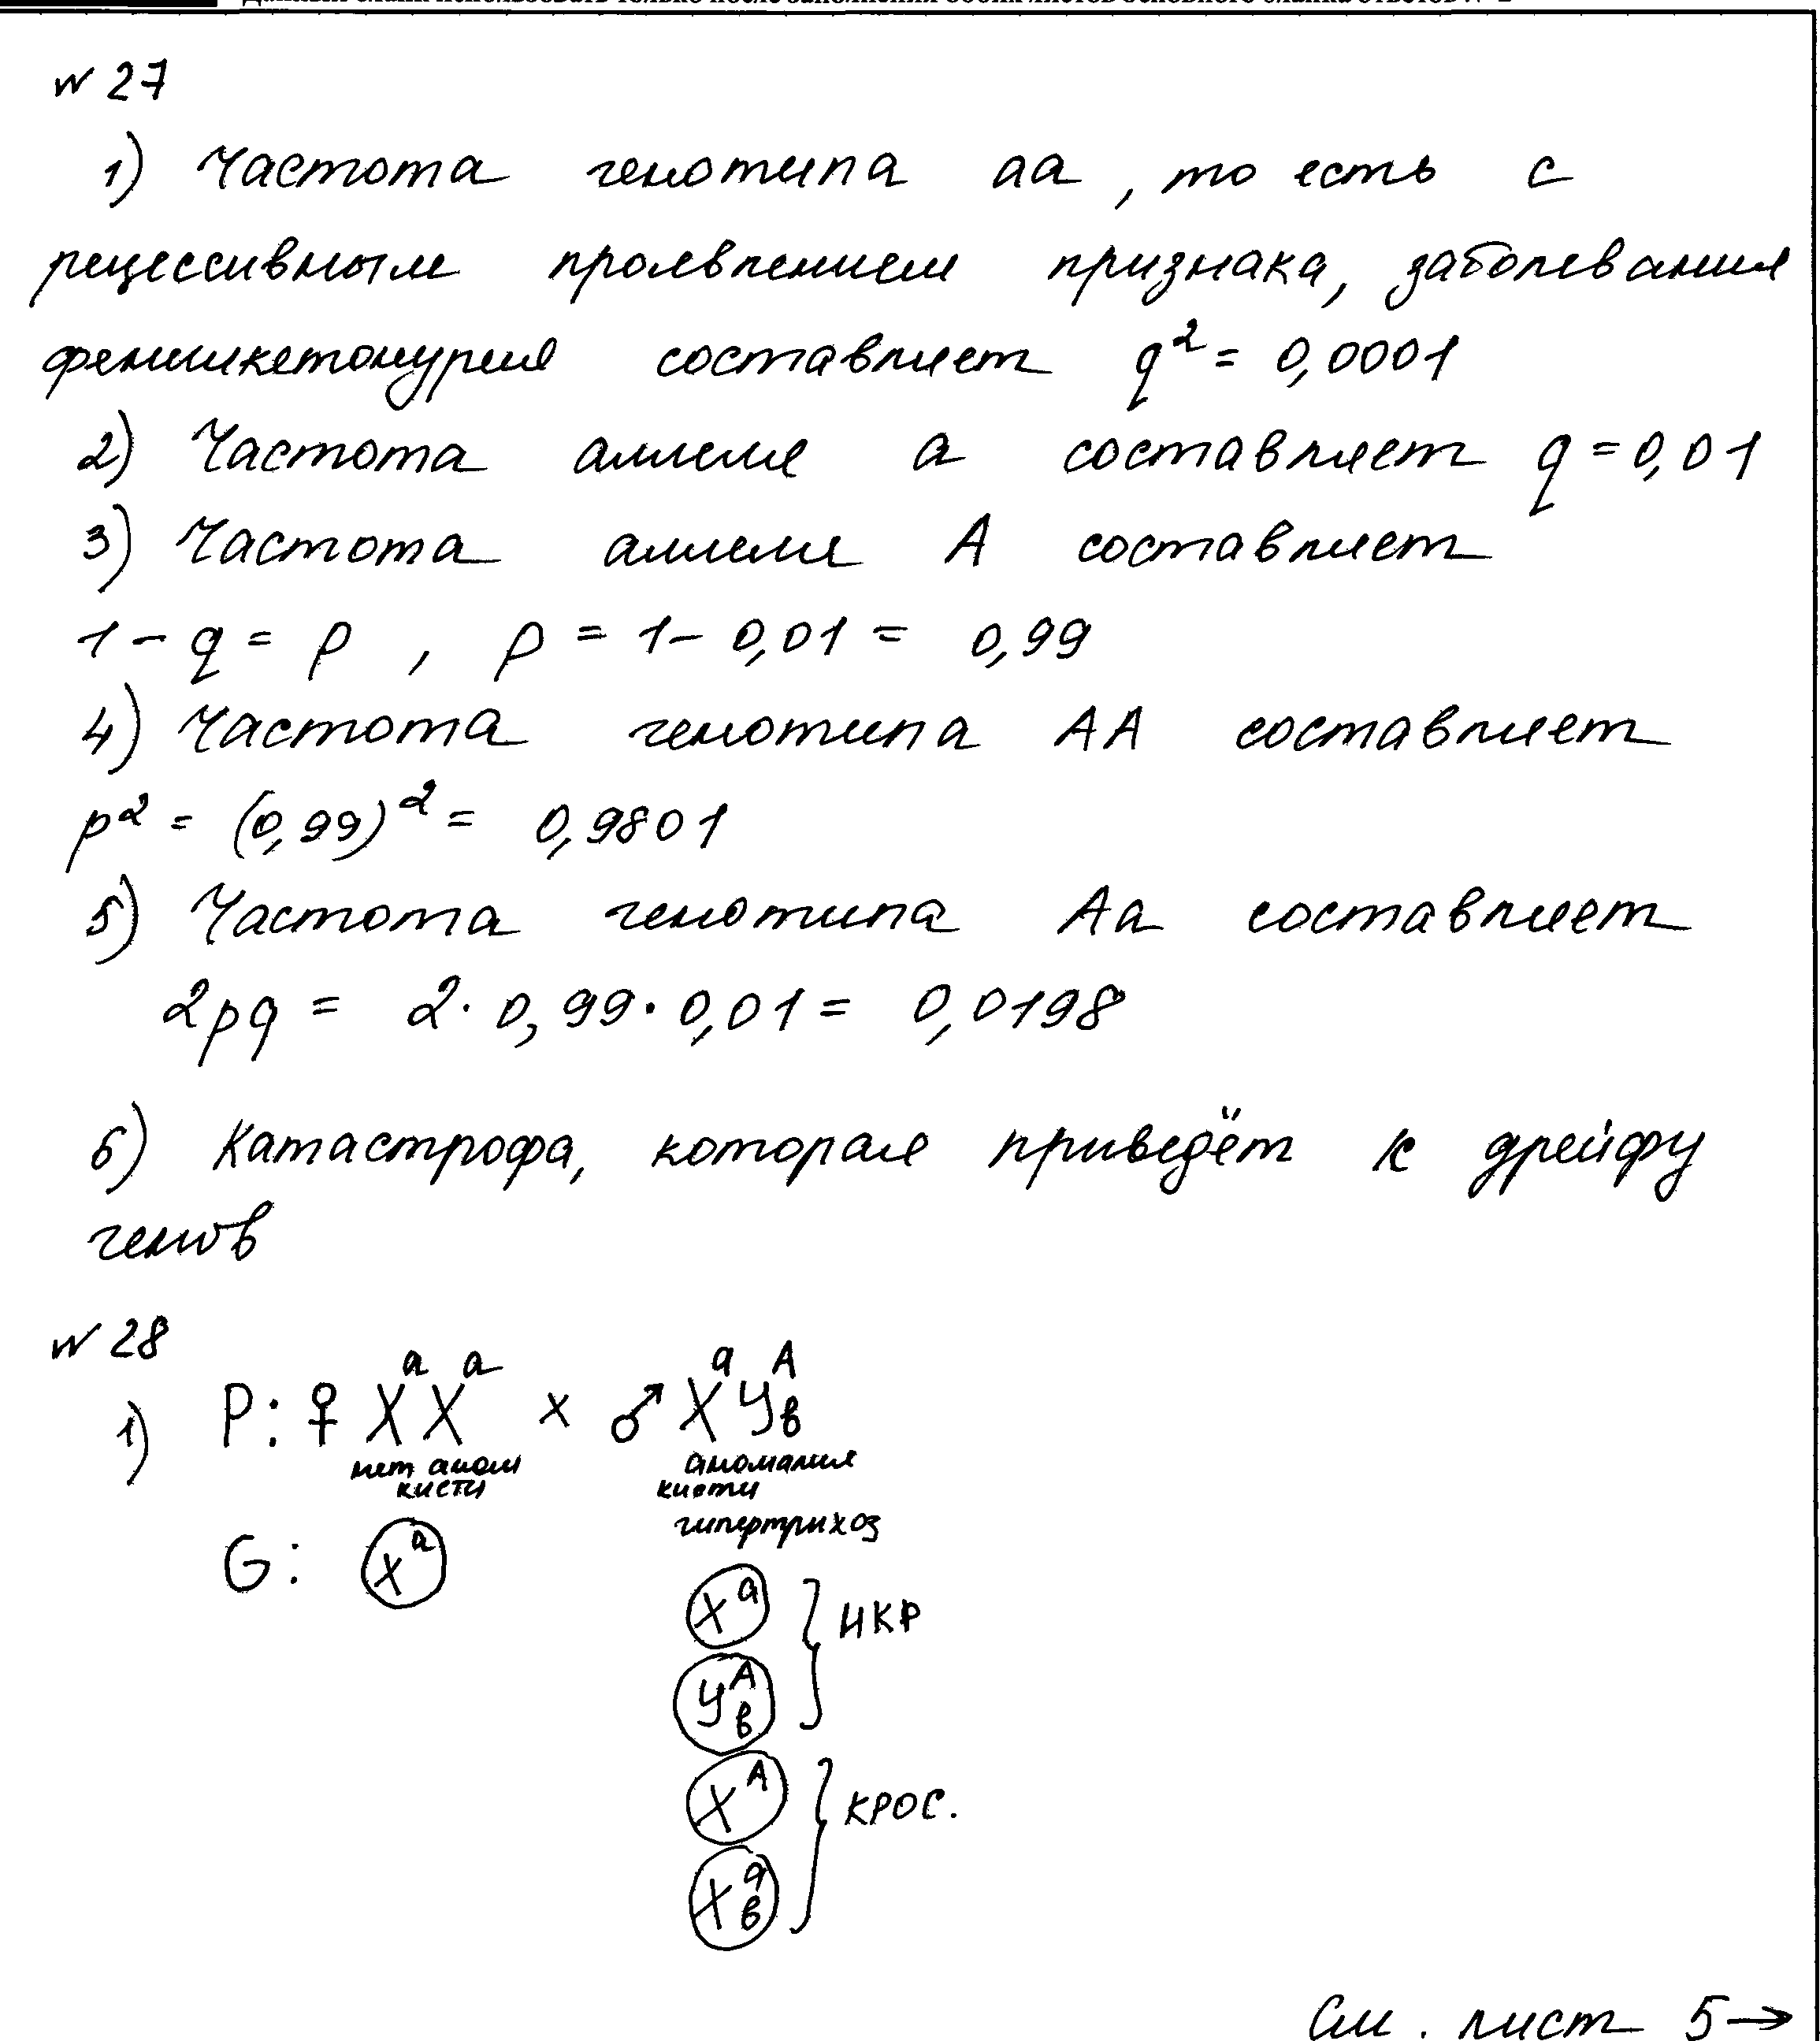 № 27
1) Частота генотипа аа, то есть с
рецессивным проявлением признака, заболевания
фенилкетонурия составляет q² = 0,0001
2) Частота аллеля а составляет q = 0,01
3) Частота аллеля А составляет
1 - q = p , p = 1 - 0,01 = 0,99
4) Частота генотипа АА составляет
p² = (0,99)² = 0,9801
5) Частота генотипа Аа составляет
2pq = 2 · 0,99 · 0,01 = 0,0198
6) Катастрофа, которая приведёт к дрейфу
генов
№ 28
1) P: ♀ XᵃXᵃ × ♂ XᵃYᴬв
нет аном аномалия
кисти кисти
гипертрихоз
G: Xᵃ
Xᵃ
НКР
Yᴬв
Xᴬ
КРОС.
Xᵃв
См. лист 5 →